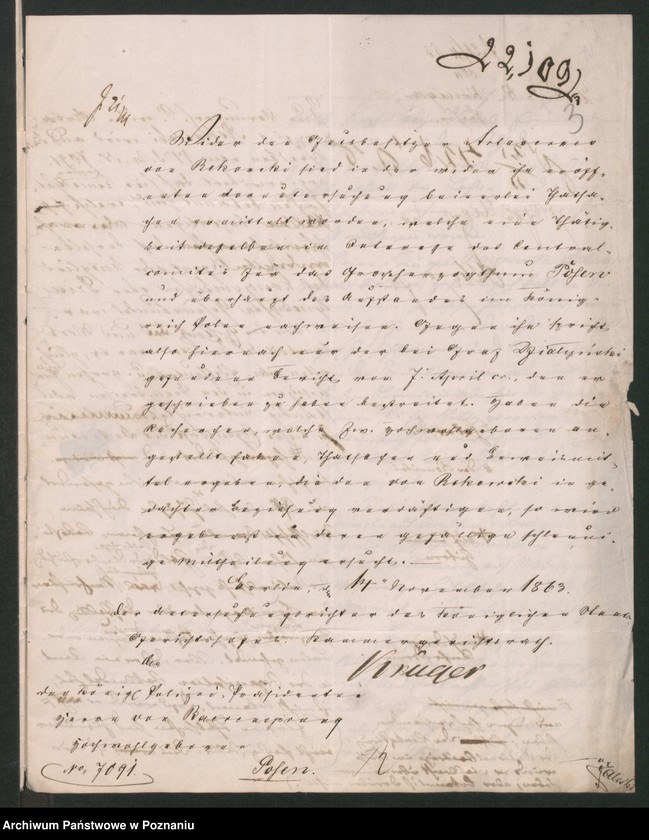 22,109
3
Wider den Gutsbesitzer
von Rekowski sind in der wider ihn eröff-
neten Voruntersuchung keinerlei Thatsa-
chen ermittelt worden, welche eine Thätig-
keit desselben im Interesse des Central-
comités für das Großherzogthum Posen
und überhaupt des Aufstandes im König-
reich Polen nachweisen. Gegen ihn spricht
also hiernach nur der bei Graf Dzialynski
gefundene Bericht vom 7. April cr., den er
geschrieben zu haben bestreitet. Haben die
Recherchen, welche Ew. Hochwohlgeboren an-
gestellt haben, Thatsachen und Beweismit-
tel ergeben, die den von Rekowski in ge-
dachter Beziehung verdächtigen, so wird
ergebenst um deren gefällige schleuni-
ge Mittheilung ersucht.
Berlin, d. 14. November 1863.
Der Untersuchungsrichter des Königlichen Staats-
Gerichtshofes. Kammergerichtsrath.
Krüger
An
den Königl. Polizei-Präsidenten
Herrn von Baerensprung
Hochwohlgeboren
No. 7091.
Posen.
Archiwum Państwowe w Poznaniu